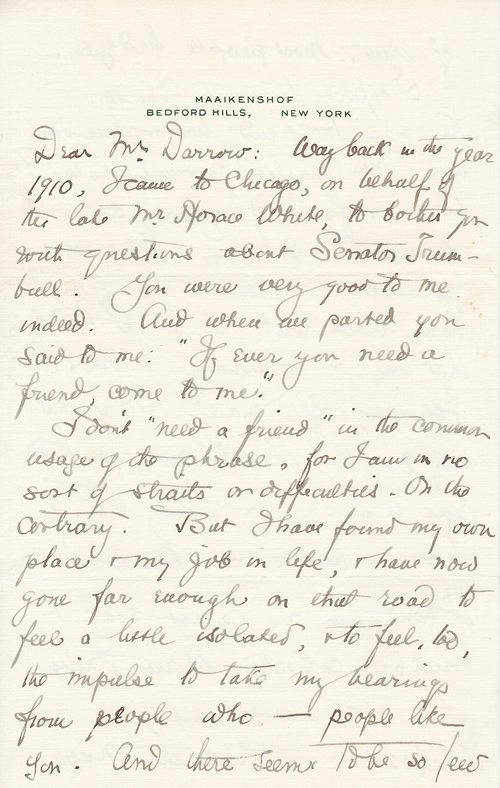 MAAIKENSHOF
BEDFORD HILLS, NEW YORK
Dear Mr. Darrow: Way back in the year
1910, I came to Chicago, on behalf of
the late Mr. Horace White, to bother you
with questions about Senator Trum-
bull. You were very good to me
indeed. And when we parted you
said to me: "If ever you need a
friend, come to me."
I don't "need a friend" in the common
usage of the phrase, for I am in no
sort of straits or difficulties. On the
contrary. But I have found my own
place + my job in life, + have now
gone far enough on that road to
feel a little isolated, + to feel, too,
the impulse to take my bearings
from people who — people like
you. And there seem to be so few